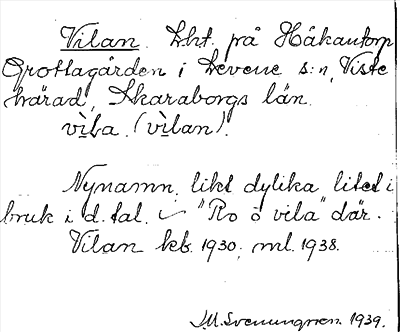 Vilan. Lht. på Håkantorp
Grottagården i Levene s:n, Viste
härad, Skaraborgs län.
vìla. (vìlan).
Nynamn. likt dylika litet i
bruk i d. tal. i "Ro ò vila" där.
Vilan keb. 1930, ml. 1938.
I.M. Svenungsson. 1939.